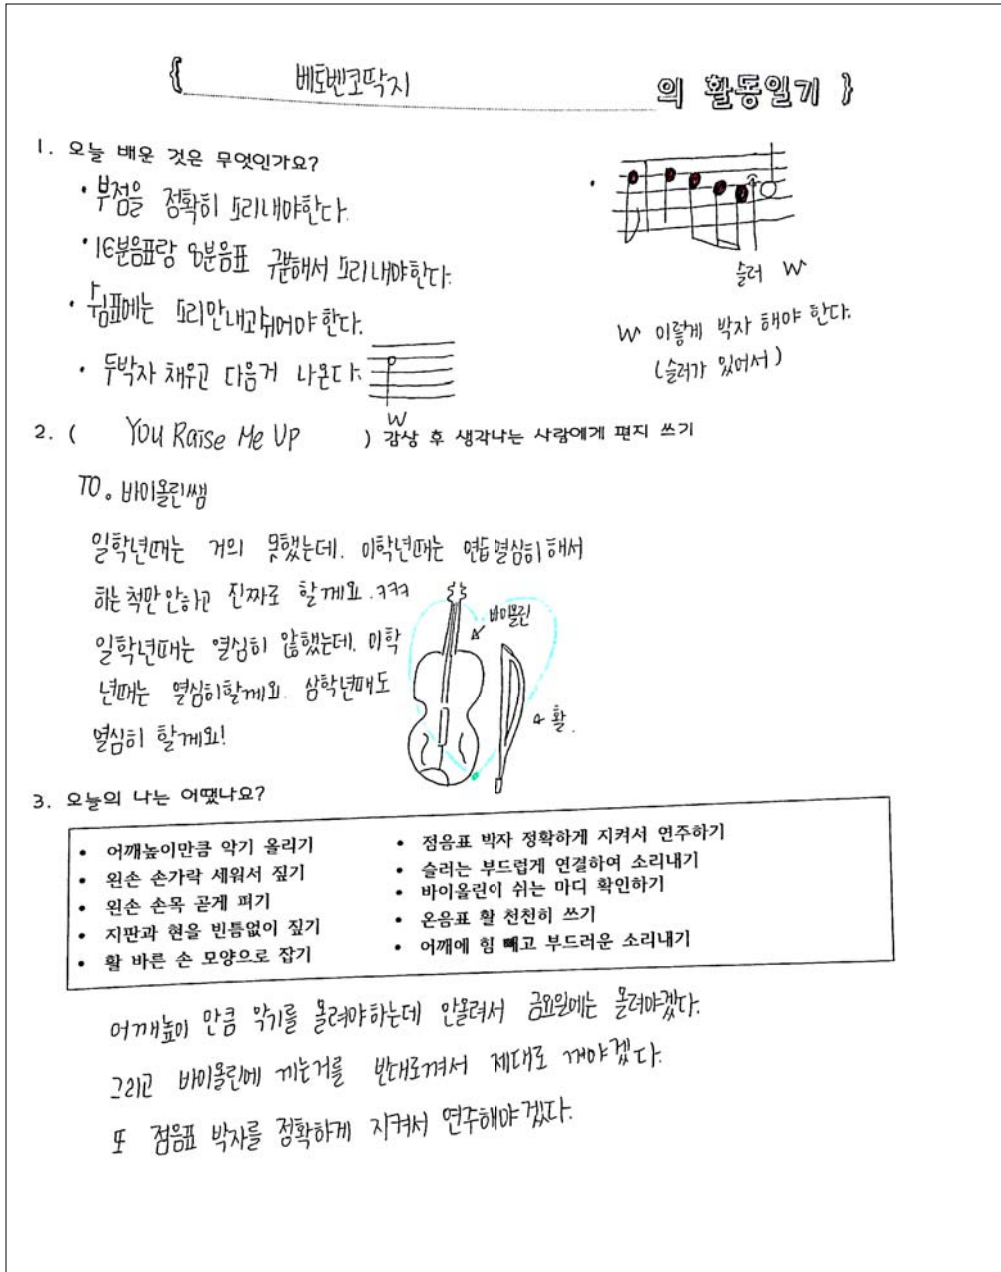 { 베토벤코딱지 의 활동일기 }
1. 오늘 배운 것은 무엇인가요?
• 부점을 정확히 소리내야한다.
• 16분음표랑 8분음표 구분해서 소리내야한다.
• 쉼표에는 소리안내고쉬어야 한다.
• 두박자 채우고 다음거 나온다.
W
•
슬러 W
W 이렇게 박자 해야 한다.
(슬러가 있어서)
2. ( You Raise Me Up ) 감상 후 생각나는 사람에게 편지 쓰기
TO. 바이올린쌤
일학년때는 거의 못했는데. 이학년때는 연습열심히해서
하는척만 안하고 진짜로 할께요.ㅋㅋㅋ
일학년때는 열심히 않했는데. 이학
년때는 열심히할께요. 삼학년때도
열심히 할께요!
바이올린
활.
3. 오늘의 나는 어땠나요?
• 어깨높이만큼 악기 올리기
• 왼손 손가락 세워서 짚기
• 왼손 손목 곧게 펴기
• 지판과 현을 빈틈없이 짚기
• 활 바른 손 모양으로 잡기
• 점음표 박자 정확하게 지켜서 연주하기
• 슬러는 부드럽게 연결하여 소리내기
• 바이올린이 쉬는 마디 확인하기
• 온음표 활 천천히 쓰기
• 어깨에 힘 빼고 부드러운 소리내기
어깨높이 만큼 악기를 올려야하는데 안올려서 금요일에는 올려야겠다.
그리고 바이올린에 끼는거를 반대로껴서 제대로 껴야겠다.
또 점음표 박자를 정확하게 지켜서 연주해야겠다.